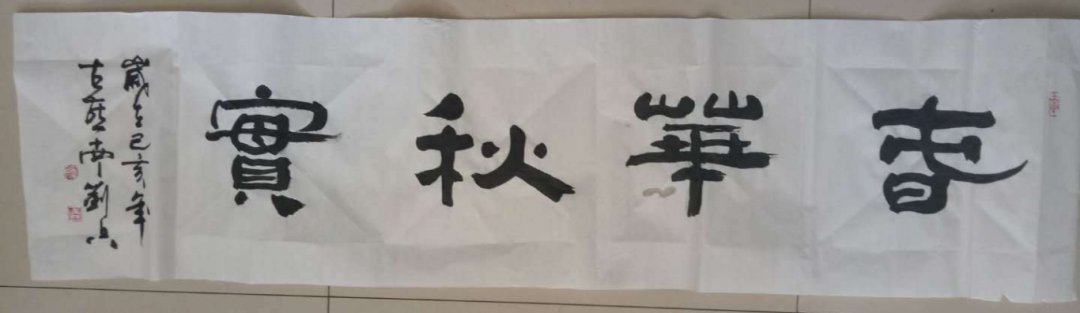 春華秋實
歲在己亥年
古 南劉